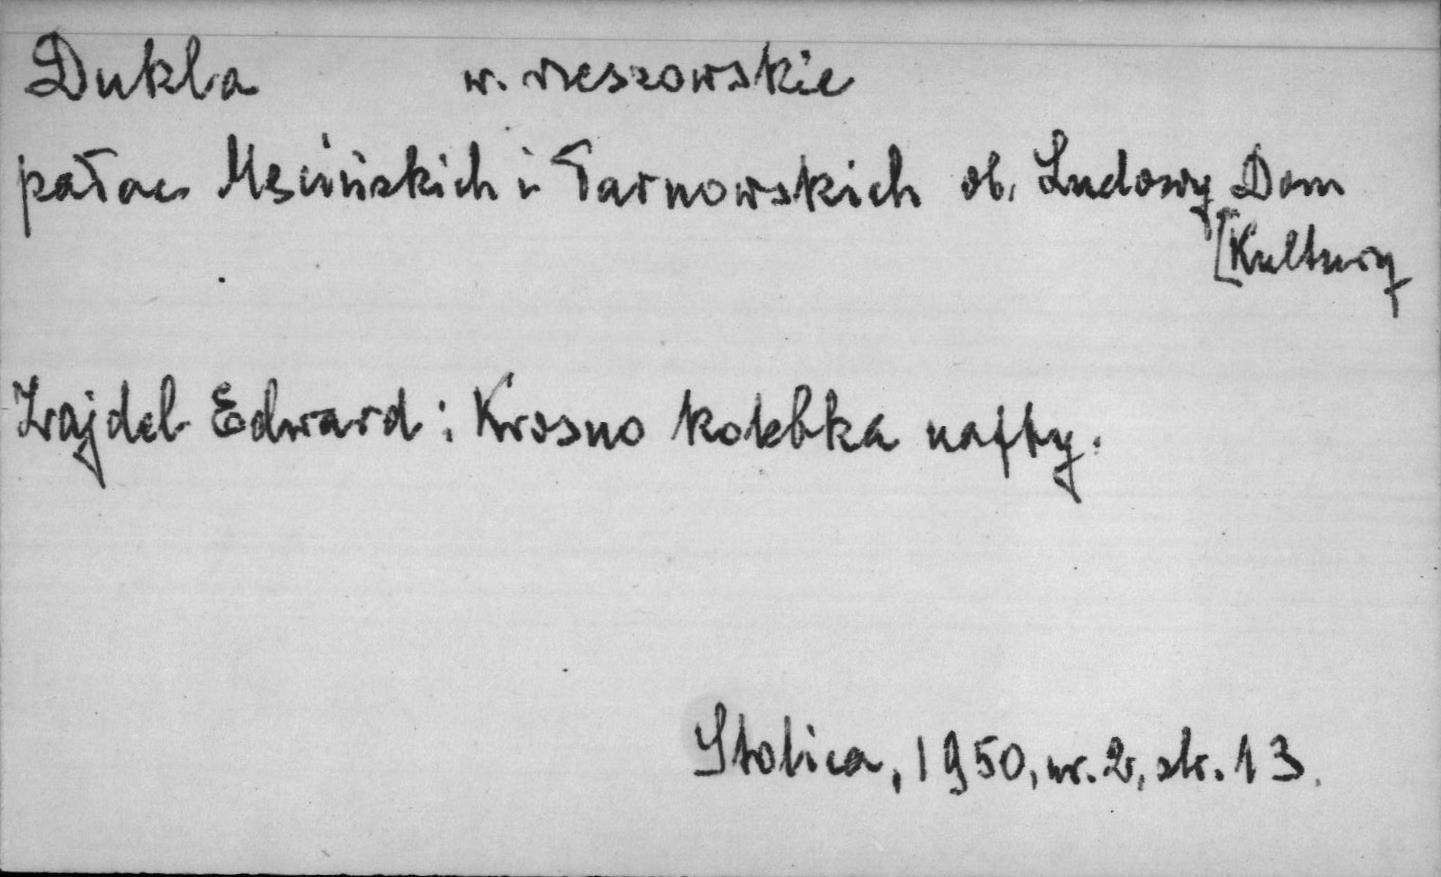 Dukla w. rzeszowskie
pałac Męcińskich i Tarnowskich ob. Ludowy Dom
[Kultury
Zajdel Edward: Krosno kolebka nafty.
Stolica, 1950, nr. 2, str. 13.